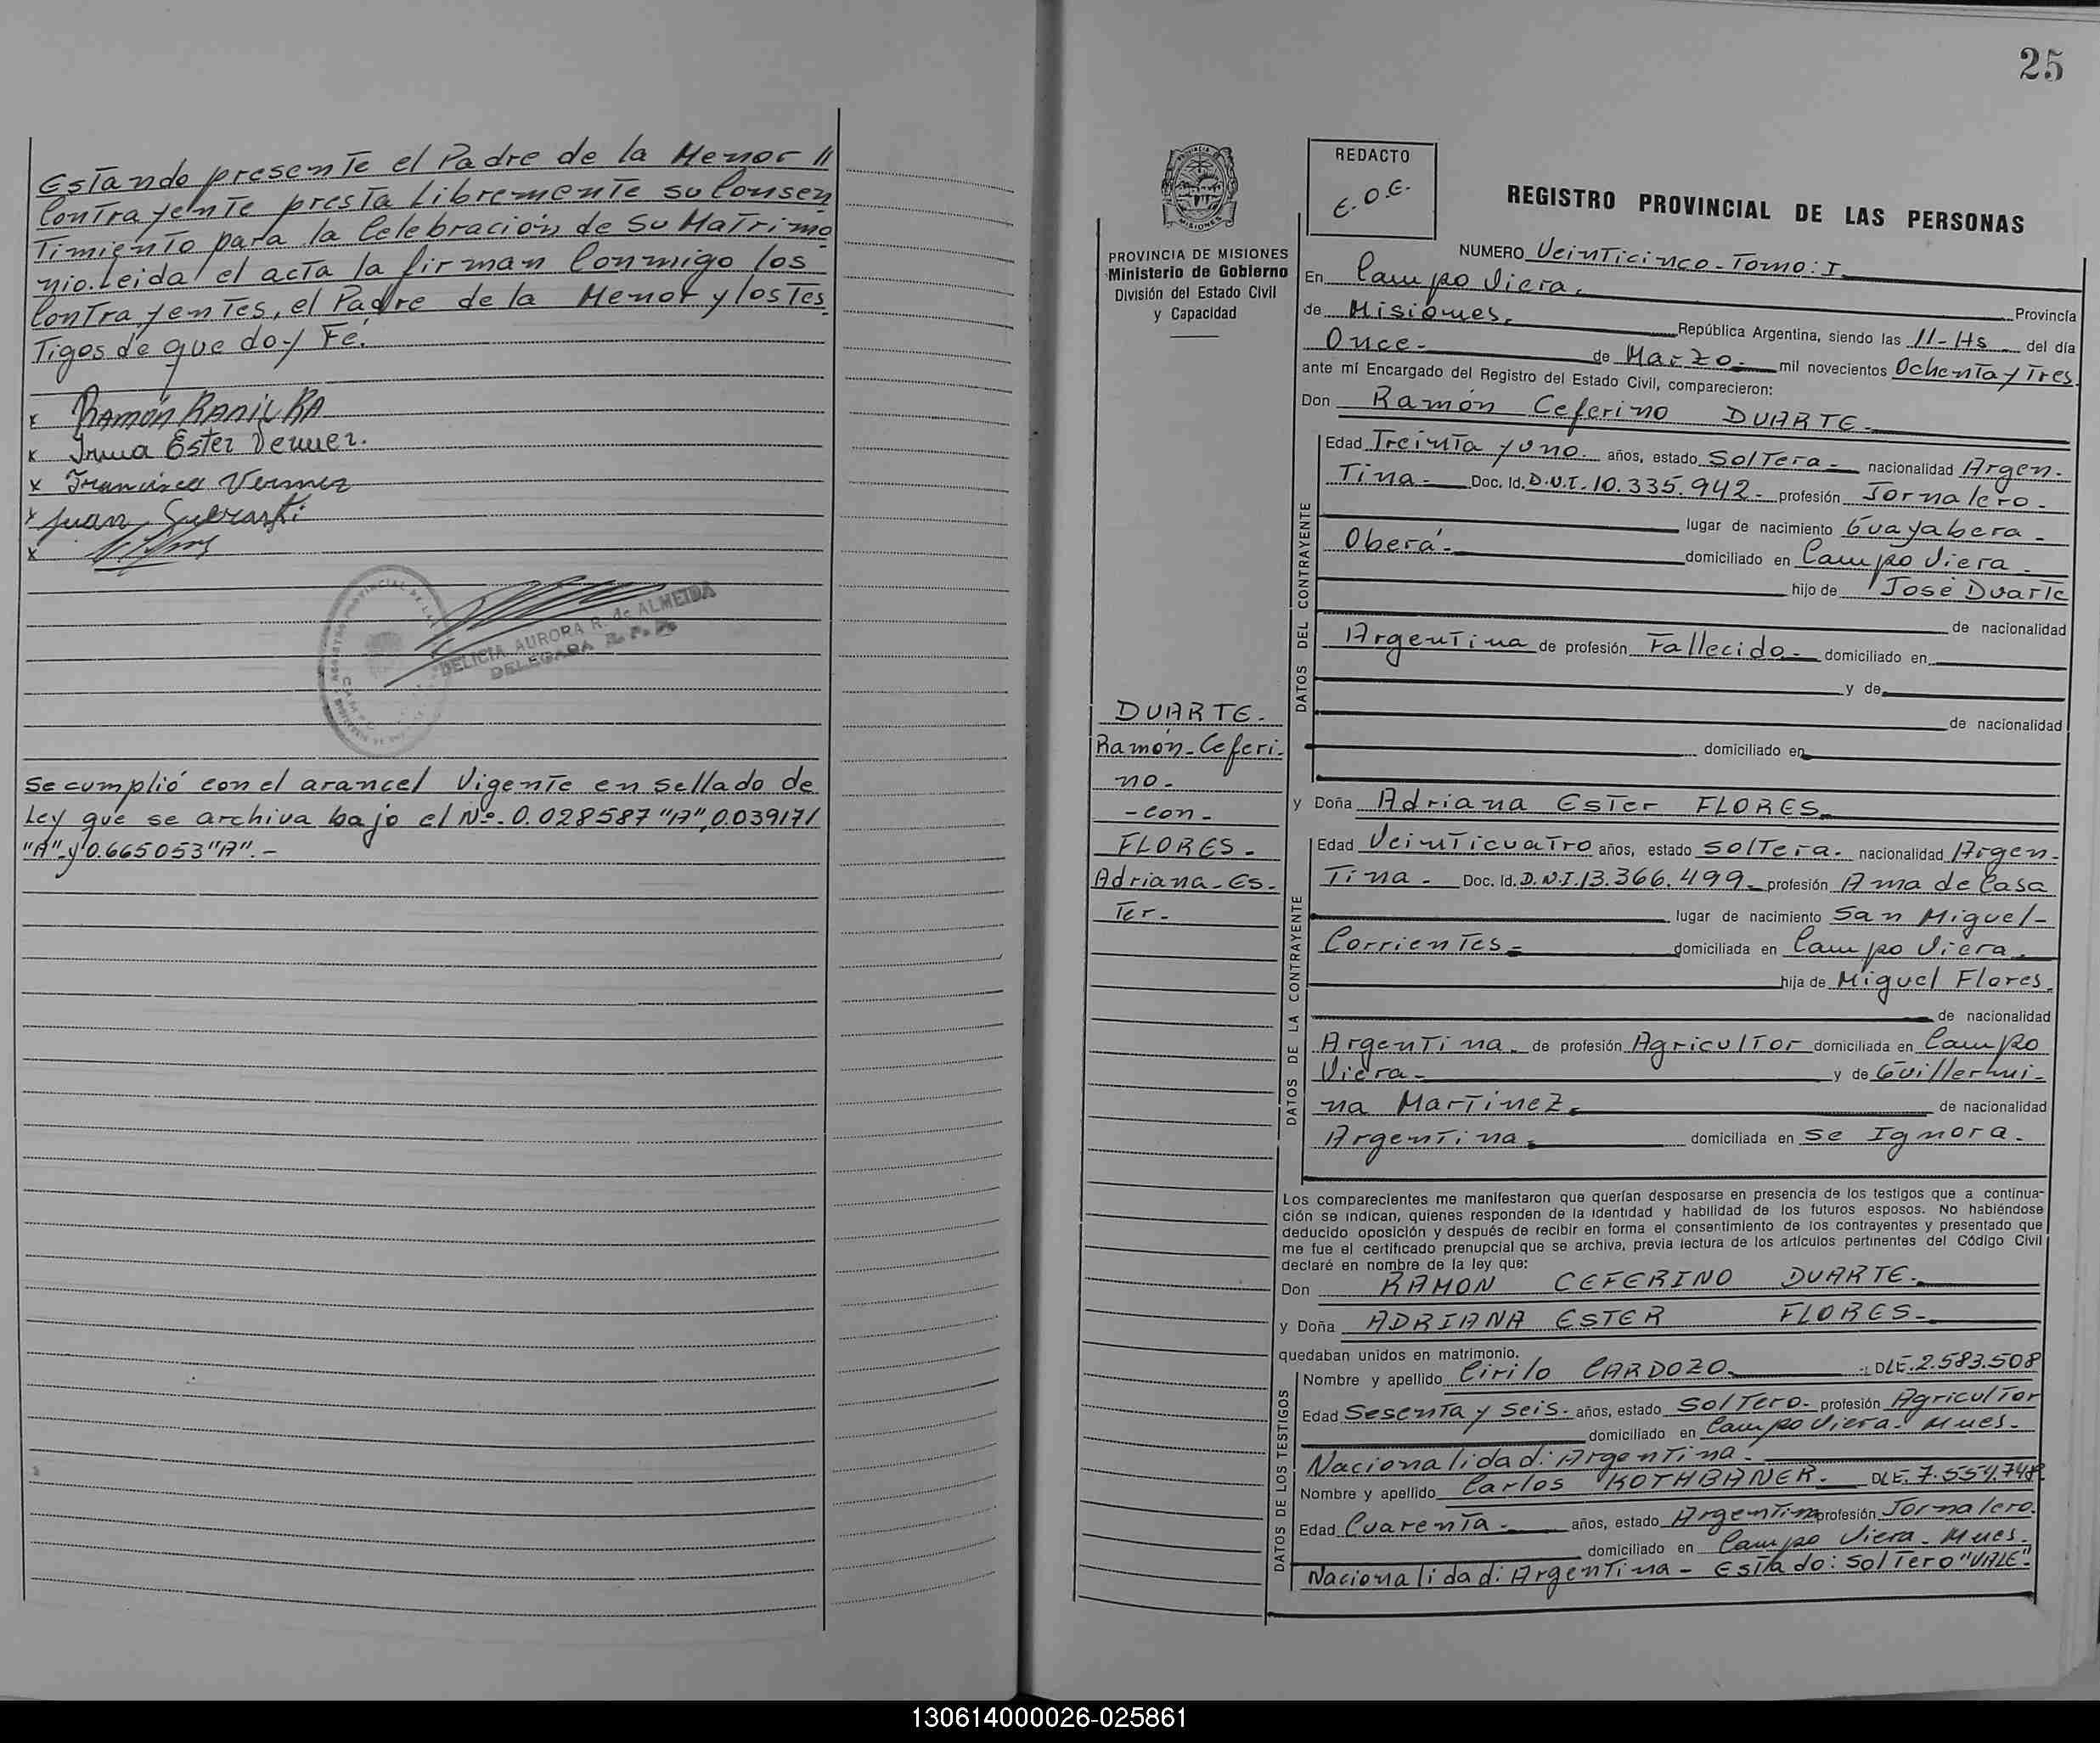 Estando presente el Padre de la Menor //
Contrayente presta Libremente su Consen
Timiento para la Celebración de Su Matrimo
nio. Leida el acta la firman Conmigo los
Contrayentes, el Padre de la Menor y los Tes
Tigos de que doy Fé.
x Ramón
x Irma Ester
x Francisco
x Juan
x
REGISTRO PROVINCIAL DE LAS
DELICIA AURORA R. de ALMEIDA
DELEGADA R.P.P.
Se cumplió con el arancel Vigente en sellado de
Ley que se archiva bajo el Nº. 0.028587 "A", 0.039171
"A" y 0.665053 "A". -
25
PROVINCIA DE MISIONES
Ministerio de Gobierno
División del Estado Civil
y Capacidad
REDACTO
E.O.E.
DUARTE.
Ramón-Ceferi-
no-
-con-
FLORES-
Adriana-Es-
Ter-
REGISTRO PROVINCIAL DE LAS PERSONAS
NUMERO VeinTicinco-Tomo: I
En Campo Viera.
Provincia
de Misiones. República Argentina, siendo las 11-Hs del día
Once- de Marzo- mil novecientos Ochenta y Tres
ante mí Encargado del Registro del Estado Civil, comparecieron:
Don Ramón Ceferino DUARTE-
DATOS DEL CONTRAYENTE
Edad Treinta y uno. años, estado Soltera- nacionalidad Argen.
Tina- Doc. Id. D.N.I. 10.335.942- profesión Jornalero-
lugar de nacimiento Guayabera-
Oberá- domiciliado en Campo Viera-
hijo de José Duarte
de nacionalidad
Argentina de profesión Fallecido- domiciliado en
y de
de nacionalidad
domiciliado en
y Doña Adriana Ester FLORES-
DATOS DE LA CONTRAYENTE
Edad VeinTicuaTro años, estado solTera. nacionalidad Argen-
Tina- Doc. Id. D.N.I. 13.366.499- profesión Ama de Casa
lugar de nacimiento San Miguel-
Corrientes- domiciliada en Campo Viera.
hija de Miguel Flores.
de nacionalidad
Argentina. de profesión Agricultor domiciliada en Campo
Viera- y de Guillermi-
na Martinez. de nacionalidad
Argentina. domiciliada en se Ignora.
Los comparecientes me manifestaron que querían desposarse en presencia de los testigos que a continua-
ción se indican, quienes responden de la identidad y habilidad de los futuros esposos. No habiéndose
deducido oposición y después de recibir en forma el consentimiento de los contrayentes y presentado que
me fue el certificado prenupcial que se archiva, previa lectura de los artículos pertinentes del Código Civil
declaré en nombre de la ley que:
Don RAMON CEFERINO DUARTE-
y Doña ADRIANA ESTER FLORES-
quedaban unidos en matrimonio.
DATOS DE LOS TESTIGOS
Nombre y apellido Cirilo CARDOZO. DLE. 2.583.508
Edad Sesenta y Seis. años, estado Soltero- profesión Agricultor
domiciliado en Campo Viera- Mnes-
Nacionalidad: Argentina-
Nombre y apellido Carlos KOTHBANER. DLE. 7.554.748
Edad Cuarenta- años, estado Argentina profesión Jornalero.
domiciliado en Campo Viera- Mnes.
Nacionalidad: Argentina- Estado: Soltero "VALE".
130614000026-025861